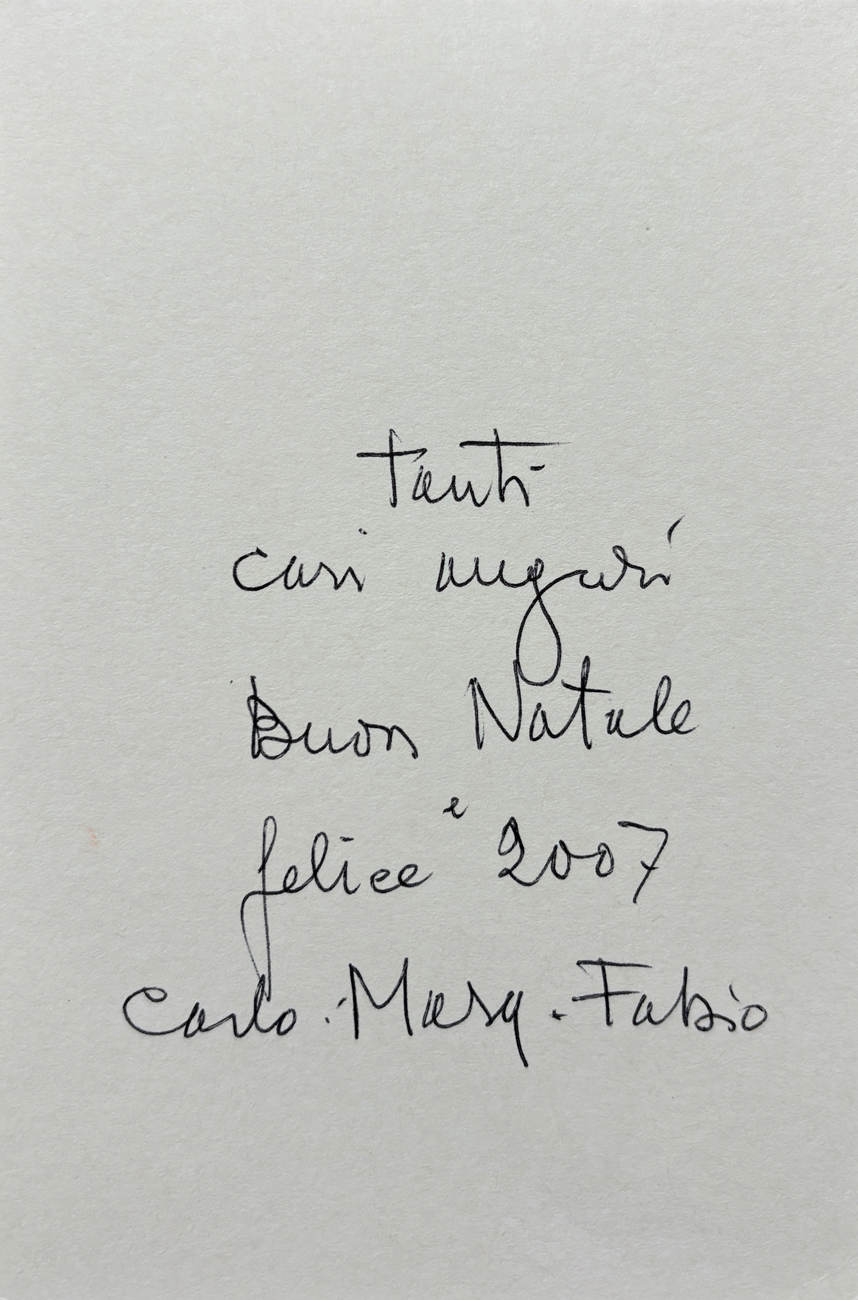 tanti
cari auguri
Buon Natale
e
felice 2007
Carlo · Mara · Fabio